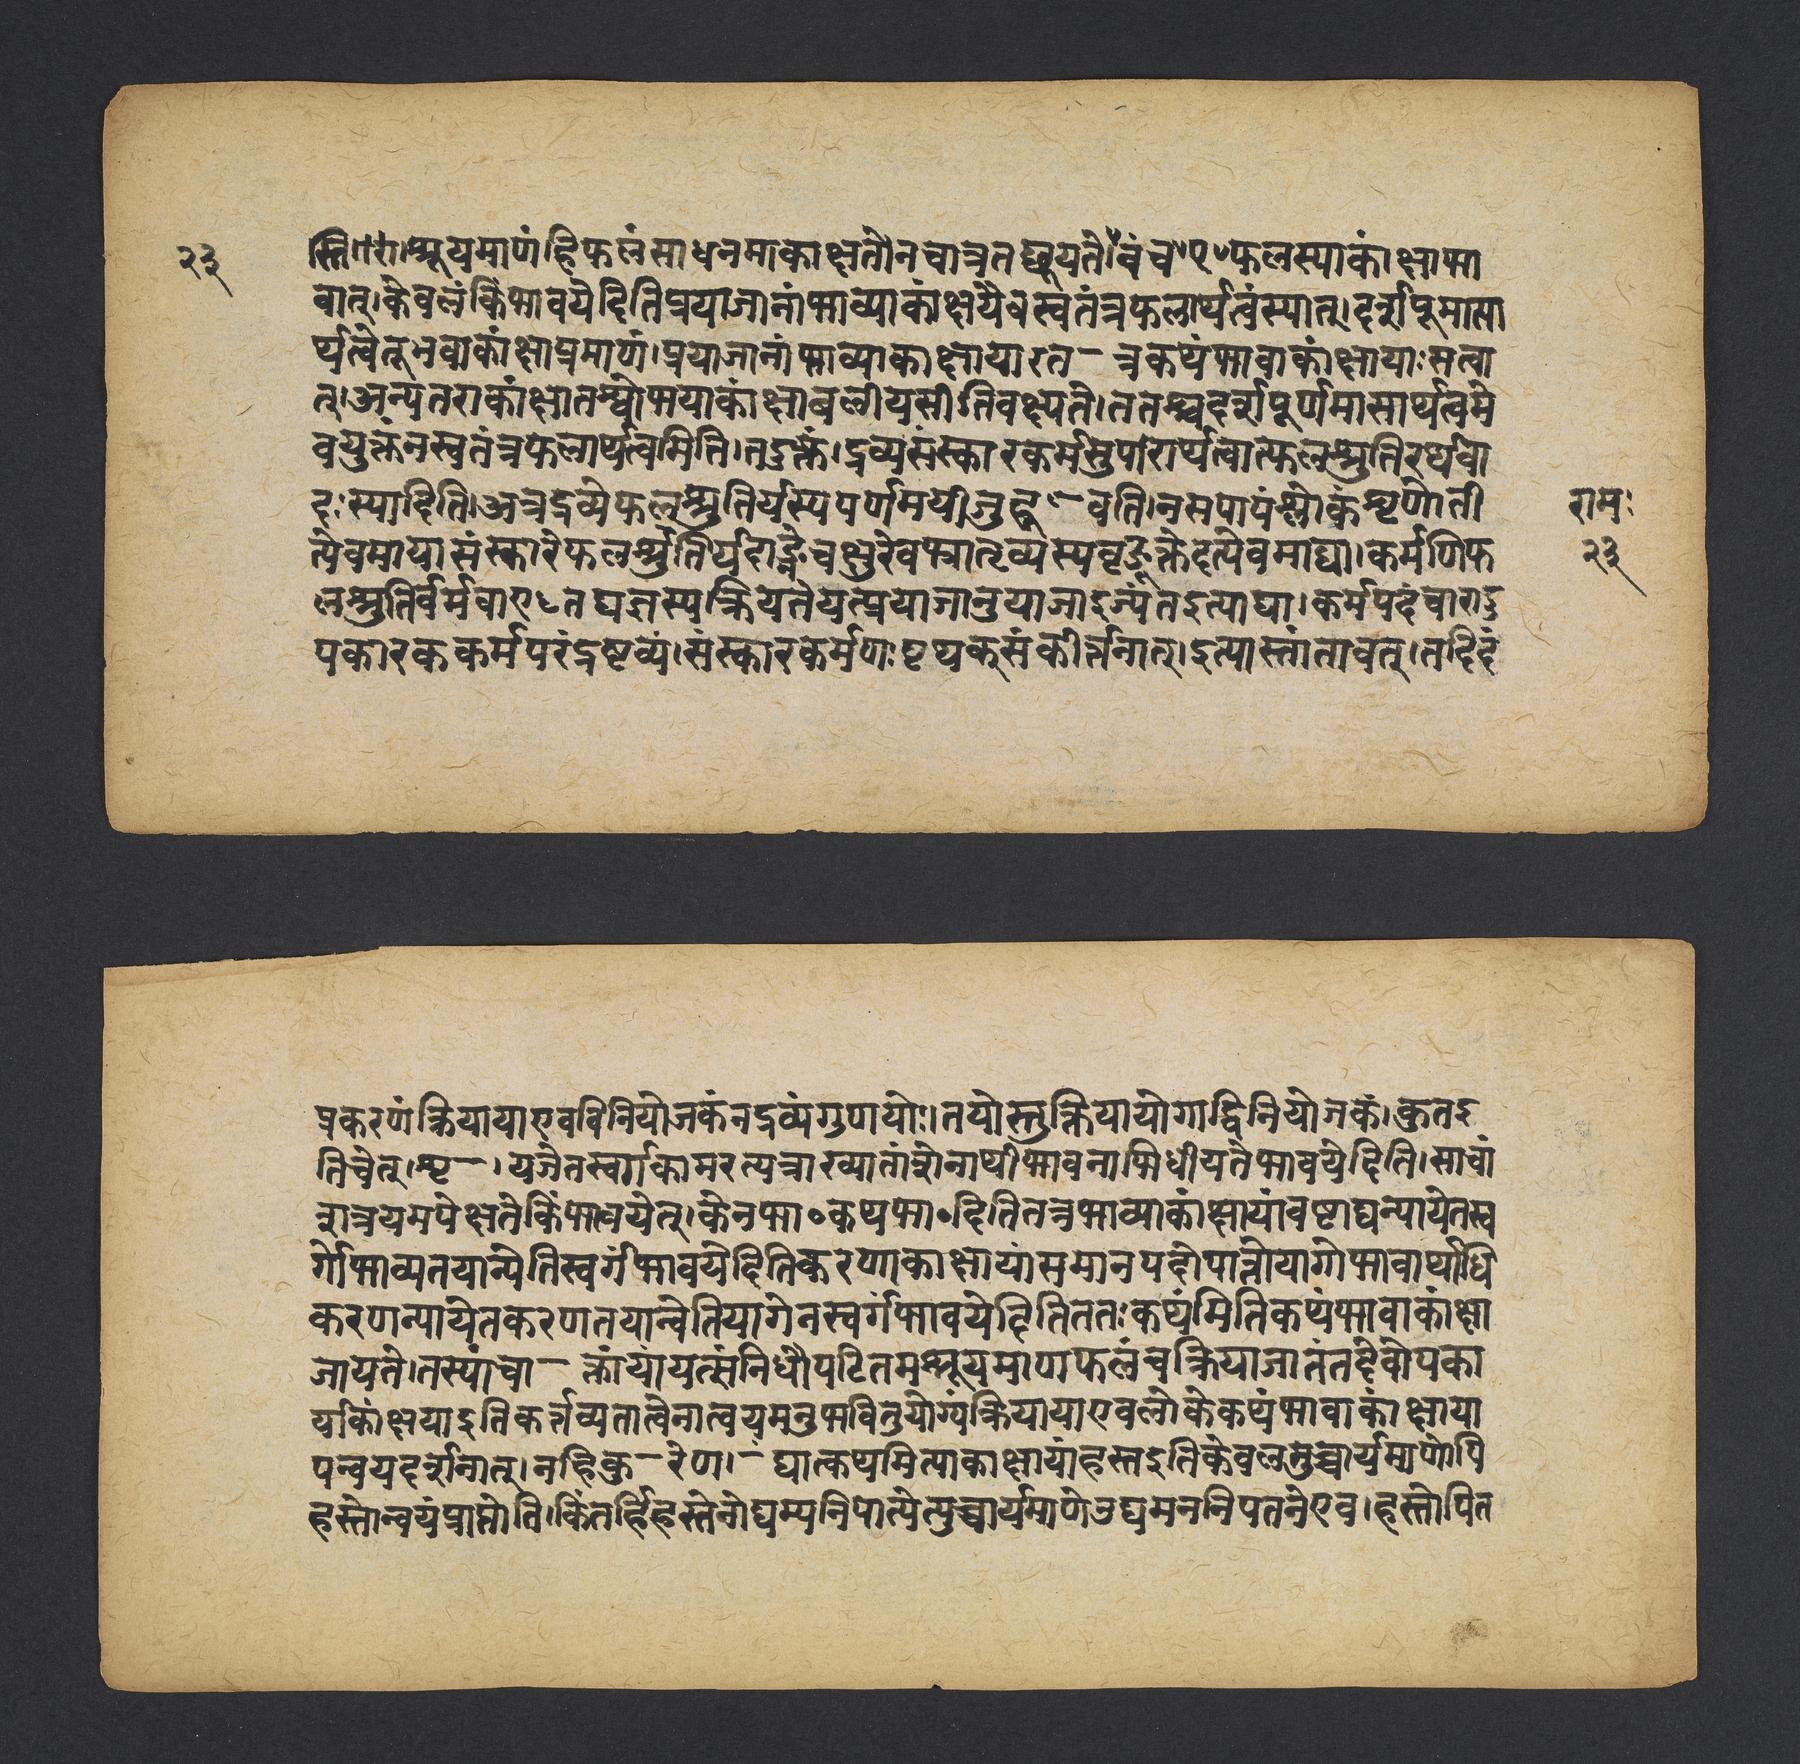 २३
स्ति।तरा।श्रूयमाणंहिफलंसाधनमाकाक्षतौनचात्रतछ्रूयते।वंच फलस्याकांक्षाभा
वात्।केवलंकिंभावयेदितिप्रयाजानांभाव्याकांक्षयैवस्वतंत्रफलार्थत्वंस्यात्।दर्शपूमासा
र्थत्वेतूभवाकांक्षाप्रमाणं।प्रयाजानांभाव्याकाक्षाया त – त्रकथंभावाकांक्षायाःसत्वा
त्।अन्यतराकांक्षातश्चोभयाकांक्षाबलीयसीतिवक्ष्यते।ततश्चदर्शपूर्णमासार्थत्वमे
वयुक्तंनस्वतंत्रफलार्थत्वमिति।तदुक्तं।द्रव्यसंस्कारकर्मसुपरार्थत्वात्फलश्रुतिरर्थवा
दःस्यादिति।अत्रद्रव्येफलश्रुतिर्यस्यपर्णमयीजुहू – वति।नसपापंश्लोकंशृणोती
त्येवमाया संस्कारेफलश्रुतिर्यदाङ्क्तेचक्षुरेवभ्रातृव्यस्यवृङ्क्तेइत्येवमाद्या।कर्मणिफ
लश्रुतिर्वर्मवाए तद्यज्ञस्यक्रियतेयत्प्रयाजानुयाजाइज्यंतइत्याद्या।कर्मपदंचारादु
पकारककर्मपरंद्रष्टव्यं।संस्कारकर्मणःपृथक्संकीर्त्तनात्।इत्यास्तांतावत्।तदिदं
रामः
२३
प्रकरणंक्रियायाएवविनियोजकंनद्रव्यंगुणयोः।तयोस्तुक्रियायोगाद्विनियोजकं।कुतइ
तिचेत्।शृ – ।यजेतस्वर्गकामरत्यत्राख्यातांशेनार्थीभावनाभिधीयतेभावयेदिति।साचां
शत्रयमपेक्षतेकिंभावयेत्।केनभा॰कथभा॰दितितत्रभाव्याकांक्षायांषष्टाद्यन्यायेतस्व
र्गोभाव्यतयान्येतिस्वर्गंभावयेदितिकरणाकाक्षायांसमानपदोपात्तोयागोभावार्थाधि
करणन्यायेतकरणतयान्वेतियागेनस्वर्गंभावयेदितिततःकथंमितिकथंभावाकांक्षा
जायते।तस्यांचा – क्तांयांयत्संनिधौपटितमश्रूयमाणफलंचक्रियाजातंतदेवोपका
र्यकांक्षयाइतिकर्त्तव्यतात्वेनात्वयमनुभवितुयोग्यंक्रियायाएवलोकेकथंभावाकांक्षाया
पन्वयदर्शनात्।नहिकु – रेण। – द्यात्कथमित्याकाक्षायांहस्तइतिकेवलमुच्चार्यमाणोपि
हस्तोन्वयंप्राप्तोति।किंतर्हिहस्तेनोद्यम्यनिपात्येत्युच्चार्यमाणेउद्यमननिपतनेएव।हस्तोपित